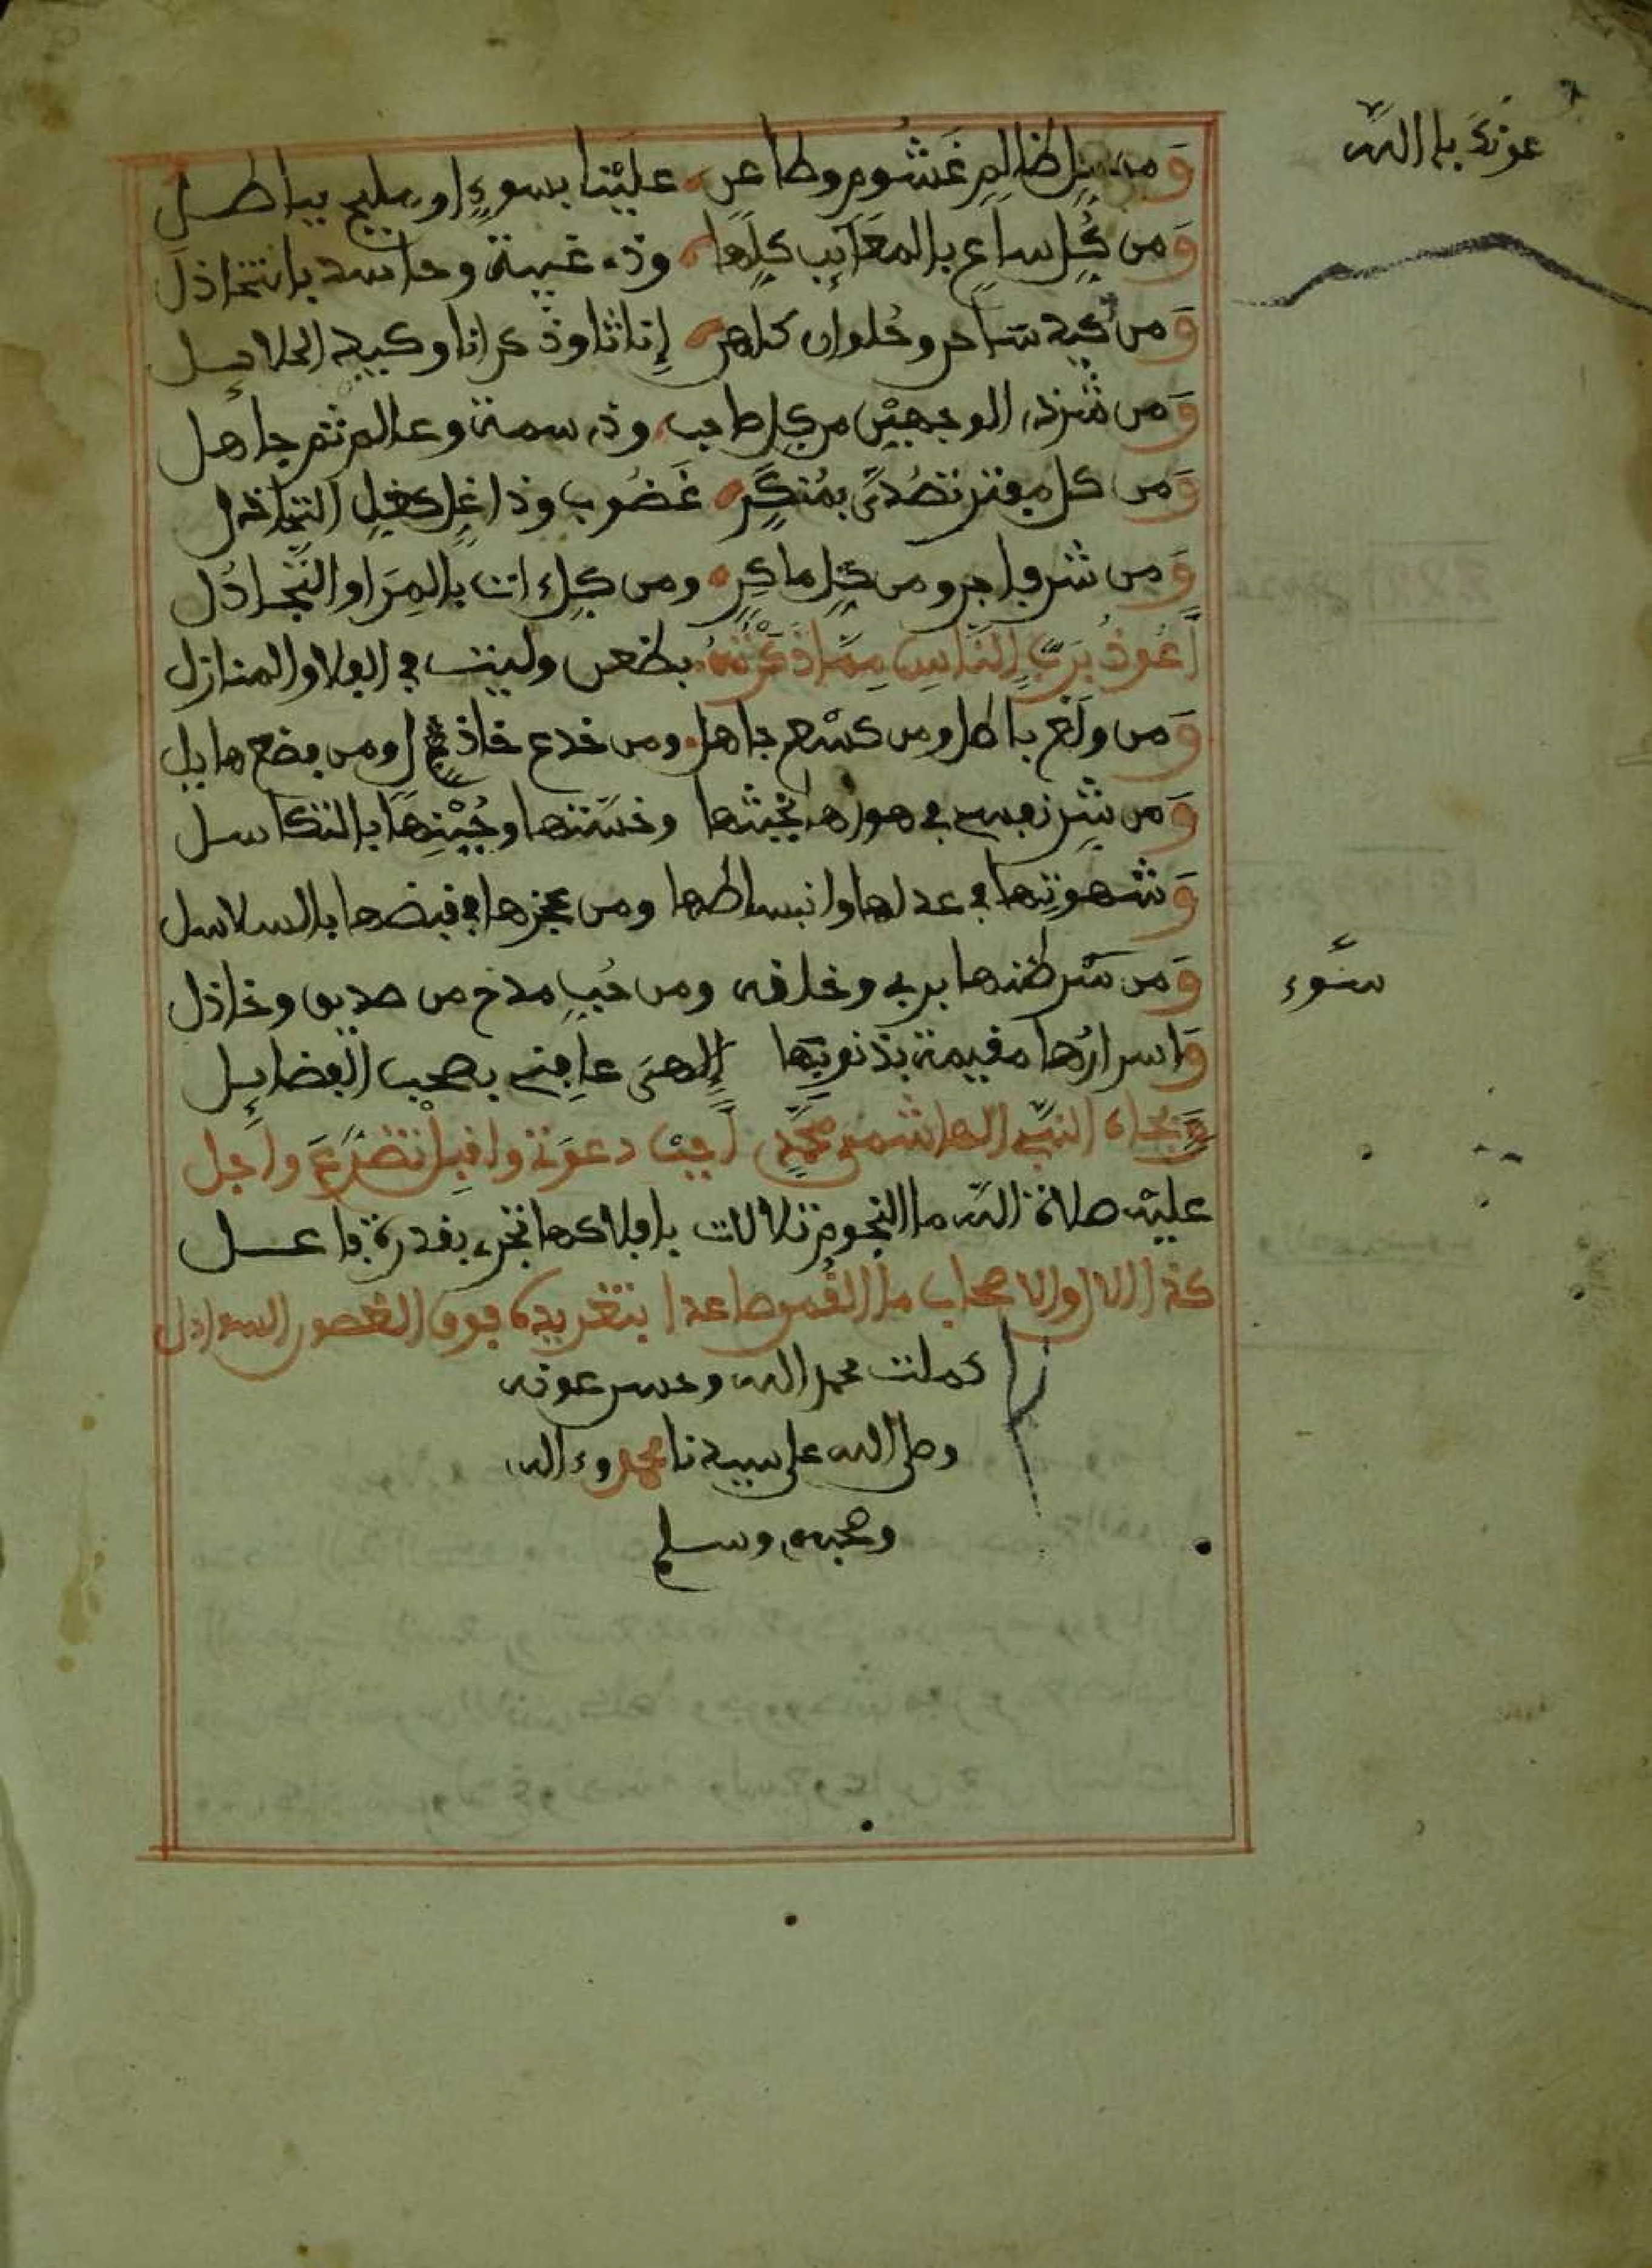 عونك يا الله
ومن كل ظالم غشوم وطاعن علينا بسوء او بباطل
ومن كل ساع بالمعايب كلها وذي غيبة وحاسد بالتخاذل
ومن كيد ساحر وحلوان كاهن إناثا وذكرانا وكيد الحلايل
ومن شر ذي الوجهين من كل صاحب وذي سمة وعالم ثم جاهل
ومن كل مفتر تصدى بمنكر غضوب وذا غل
ومن شر فاجر ومن كل ماكر ومن كل ءات بالمرا والتجادل
أعوذ برب الناس مما ذكرته بظعن ولبث في الفلا والمنازل
ومن ولغ باطل ومن جاهل ومن خدع خاذل ومن
ومن شر نفسي في هواها بخبثها وخستها وجبنها بالتكاسل
وشهوتها في عدلها وانبساطها ومن عجزها في قبضها بالسلاسل
ومن شر ظنها بربي وخلقه ومن حب مدح من صديق وخاذل
سوء
واسرارها مقيمة بذنوبها إلهى عافني بصحب الفضايل
وبجاه النبي الهاشمي محمد أجب دعوتي واقبل تضرع واجل
عليه صلاة الله ما النجوم تلالات بافلاكها تجري بقدرة فاعل
كذا الال والاصحاب ما القمري صاعدا بتغريده فوق الغصون
كملت بحمد الله وحسن عونه
وصلى الله على سيدنا محمد وءاله
وصحبه وسلم